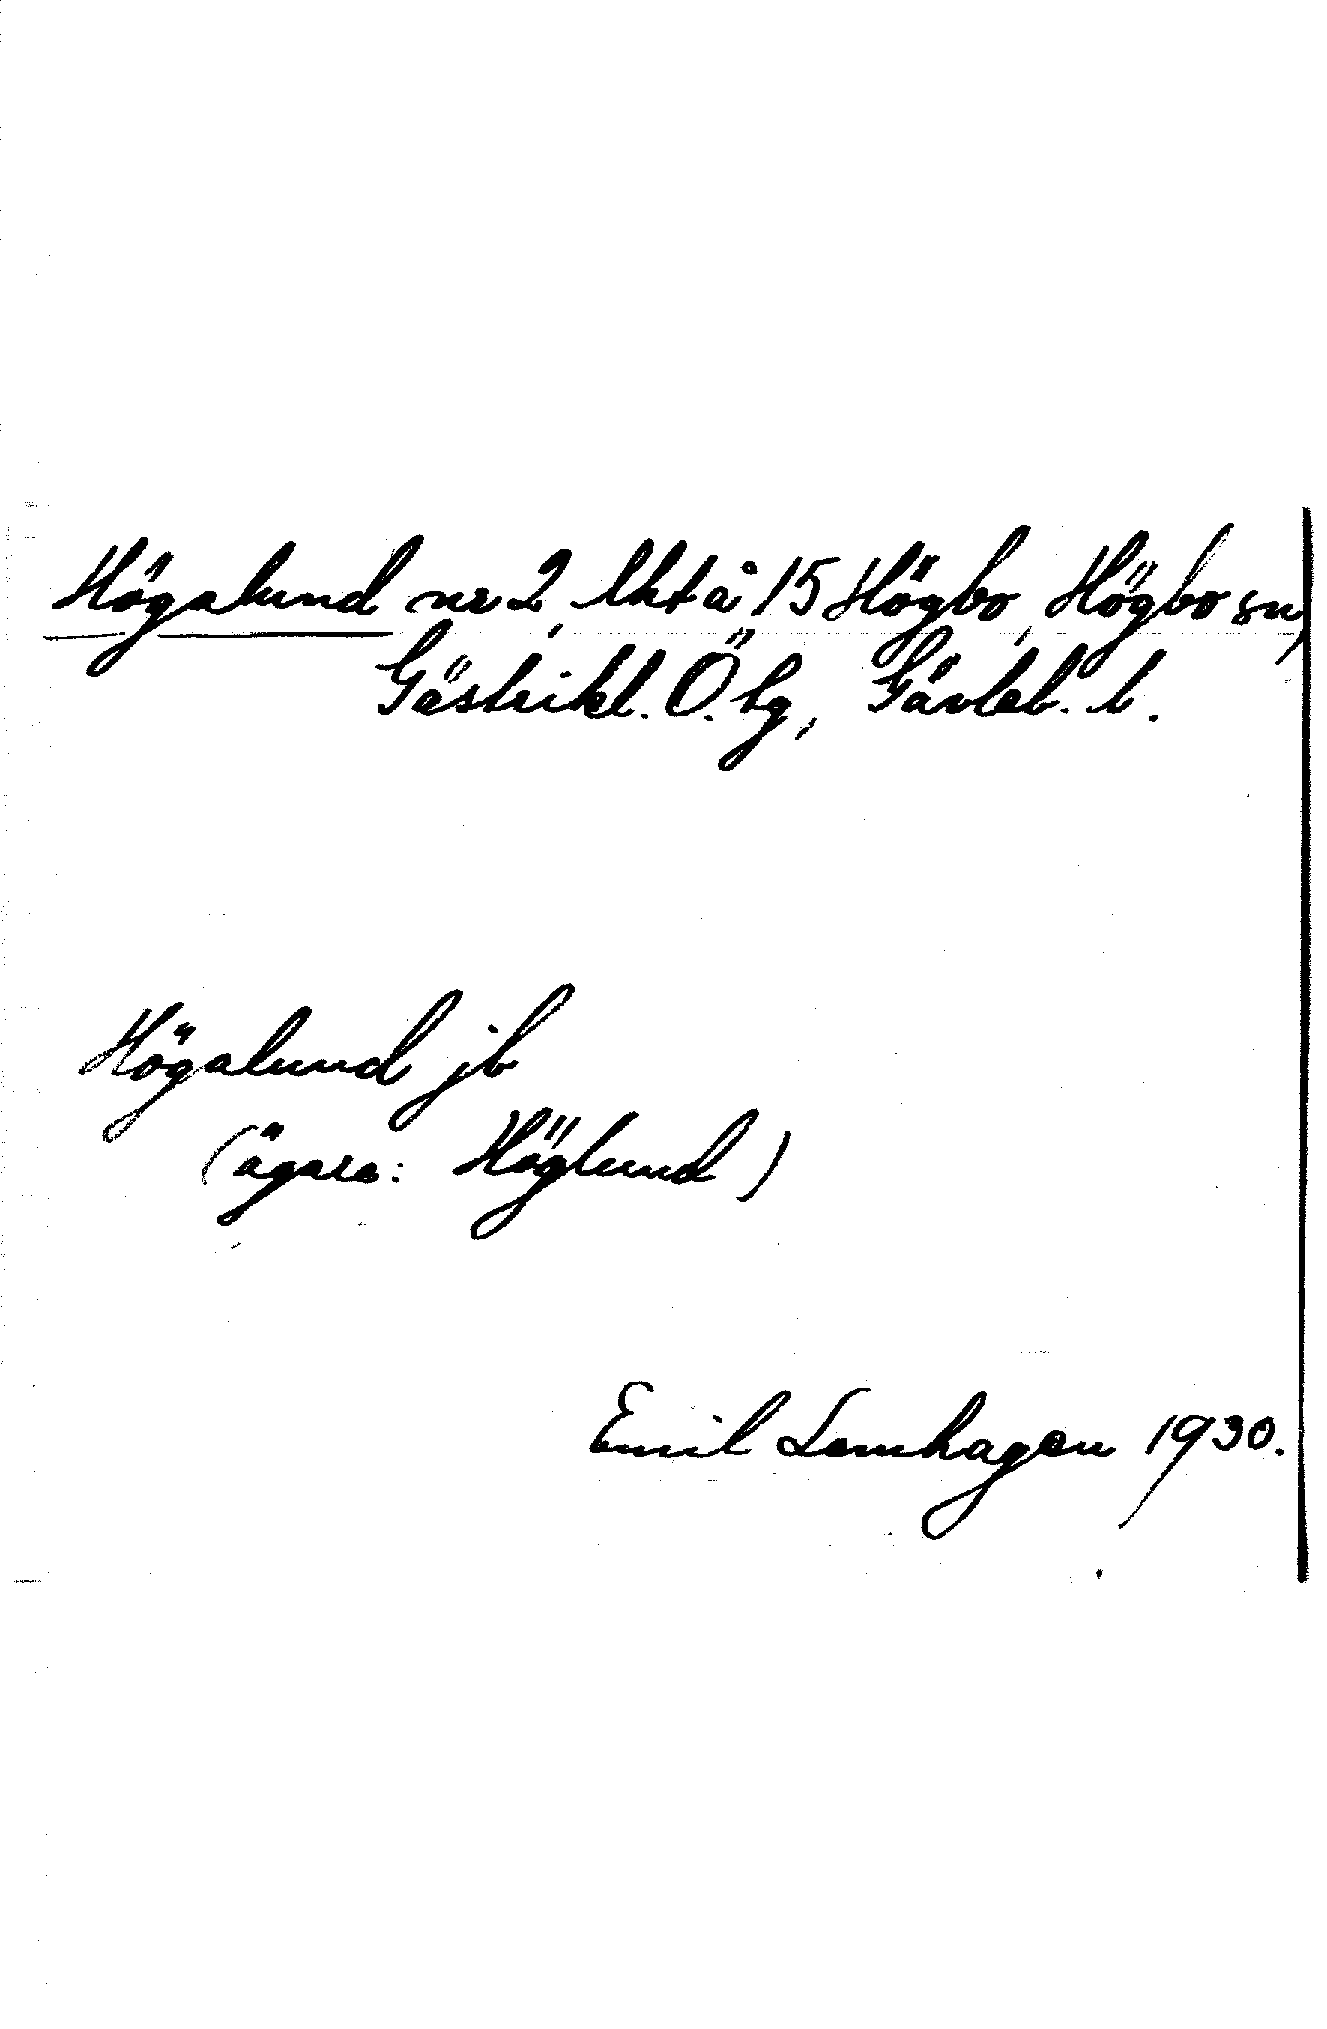 Högalund nr 2, lht å 15 Högbo, Högbo sn,
Gästrikl. Ö. tg, Gävleb. l.
Högalund jb
(ägare: Höglund)
Emil Lemhagen 1930.